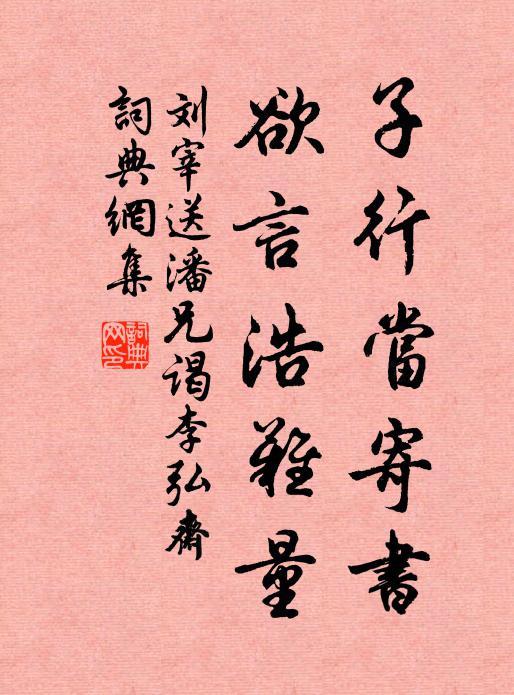 子行當寄書
欲言浩難量
刘宰送潘兄谒李弘斋
詞典網集
詞典網印